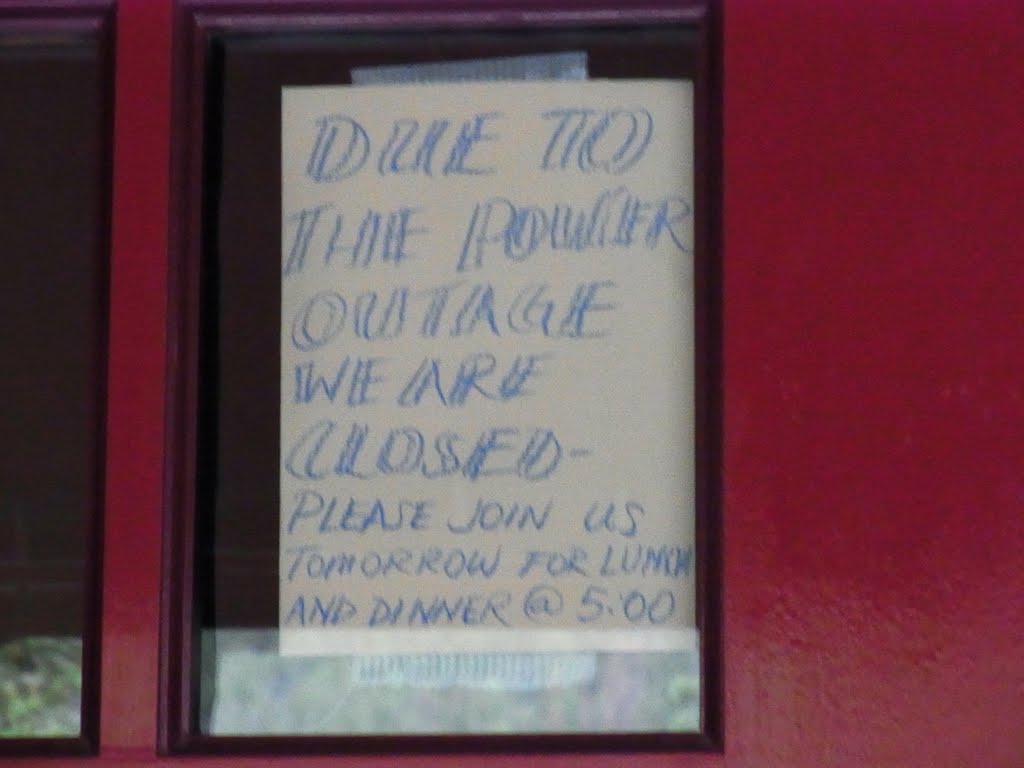 DUE TO
THE POWER
OUTAGE
WE ARE
CLOSED-
PLEASE JOIN US
TOMORROW FOR LUNCH
AND DINNER @ 5:00